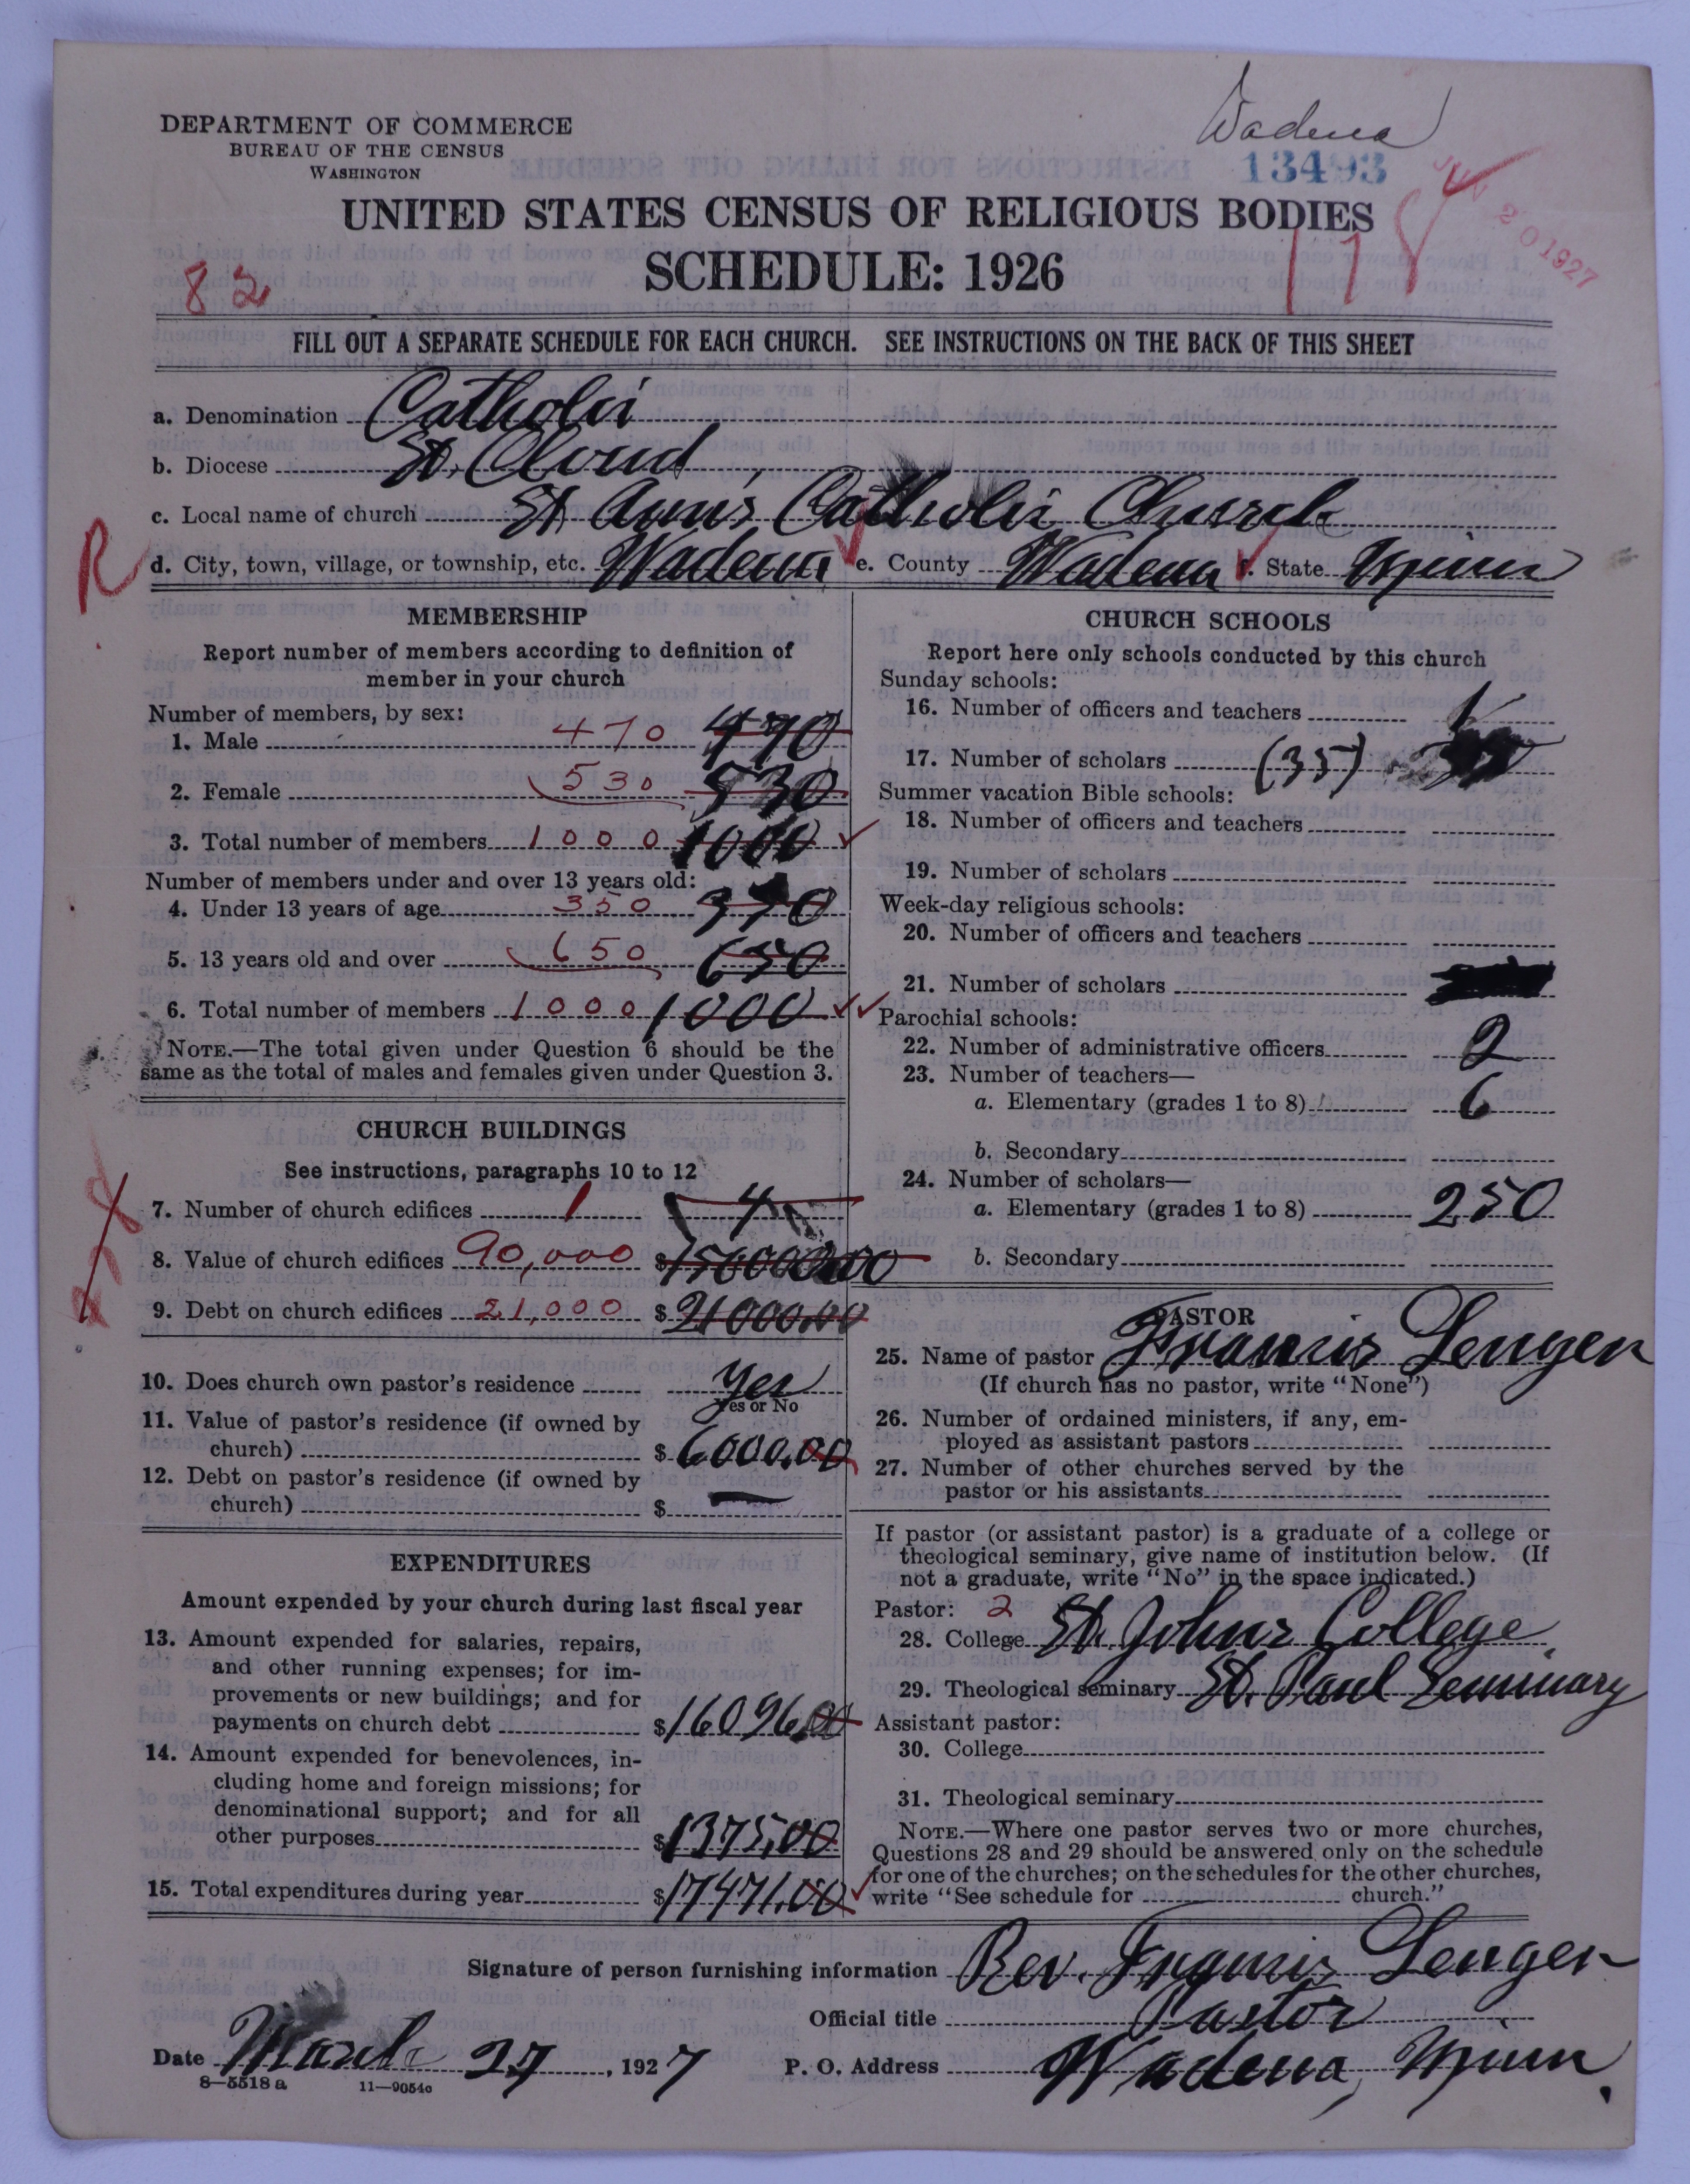 Wadena
DEPARTMENT OF COMMERCE
BUREAU OF THE CENSUS
WASHINGTON
13493
JUN 20 1927
UNITED STATES CENSUS OF RELIGIOUS BODIES
SCHEDULE: 1926
82
117
FILL OUT A SEPARATE SCHEDULE FOR EACH CHURCH. SEE INSTRUCTIONS ON THE BACK OF THIS SHEET
a. Denomination Catholic
b. Diocese St. Cloud
c. Local name of church St Ann's Catholic Church
R
d. City, town, village, or township, etc. Wadena e. County Wadena f. State Minn
MEMBERSHIP
Report number of members according to definition of
member in your church
Number of members, by sex:
1. Male 470 470
2. Female 530 530
3. Total number of members 1000 1000
Number of members under and over 13 years old:
4. Under 13 years of age 350 350
5. 13 years old and over 650 650
6. Total number of members 1000 1000
NOTE.—The total given under Question 6 should be the
same as the total of males and females given under Question 3.
CHURCH BUILDINGS
See instructions, paragraphs 10 to 12
7. Number of church edifices 1 4
8. Value of church edifices 90,000 $
9. Debt on church edifices 21,000 $21000.00
10. Does church own pastor's residence Yes
Yes or No
11. Value of pastor's residence (if owned by
church) $6000.00
12. Debt on pastor's residence (if owned by
church) $ —
EXPENDITURES
Amount expended by your church during last fiscal year
13. Amount expended for salaries, repairs,
and other running expenses; for im-
provements or new buildings; and for
payments on church debt $16096.00
14. Amount expended for benevolences, in-
cluding home and foreign missions; for
denominational support; and for all
other purposes $1375.00
15. Total expenditures during year $17471.00
CHURCH SCHOOLS
Report here only schools conducted by this church
Sunday schools:
16. Number of officers and teachers 1
17. Number of scholars (35)
Summer vacation Bible schools:
18. Number of officers and teachers
19. Number of scholars
Week-day religious schools:
20. Number of officers and teachers
21. Number of scholars
Parochial schools:
22. Number of administrative officers 2
23. Number of teachers—
a. Elementary (grades 1 to 8) 6
b. Secondary
24. Number of scholars—
a. Elementary (grades 1 to 8) 250
b. Secondary
PASTOR
25. Name of pastor Francis Lenger
(If church has no pastor, write "None")
26. Number of ordained ministers, if any, em-
ployed as assistant pastors
27. Number of other churches served by the
pastor or his assistants
If pastor (or assistant pastor) is a graduate of a college or
theological seminary, give name of institution below. (If
not a graduate, write "No" in the space indicated.)
Pastor: 2
28. College St. Johns College
29. Theological seminary St. Paul Seminary
Assistant pastor:
30. College
31. Theological seminary
NOTE.—Where one pastor serves two or more churches,
Questions 28 and 29 should be answered only on the schedule
for one of the churches; on the schedules for the other churches,
write "See schedule for church."
Signature of person furnishing information Rev. Francis Lenger
Official title Pastor
Date March 27, 1927 P. O. Address Wadena, Minn.
8—5518 a 11—9054c